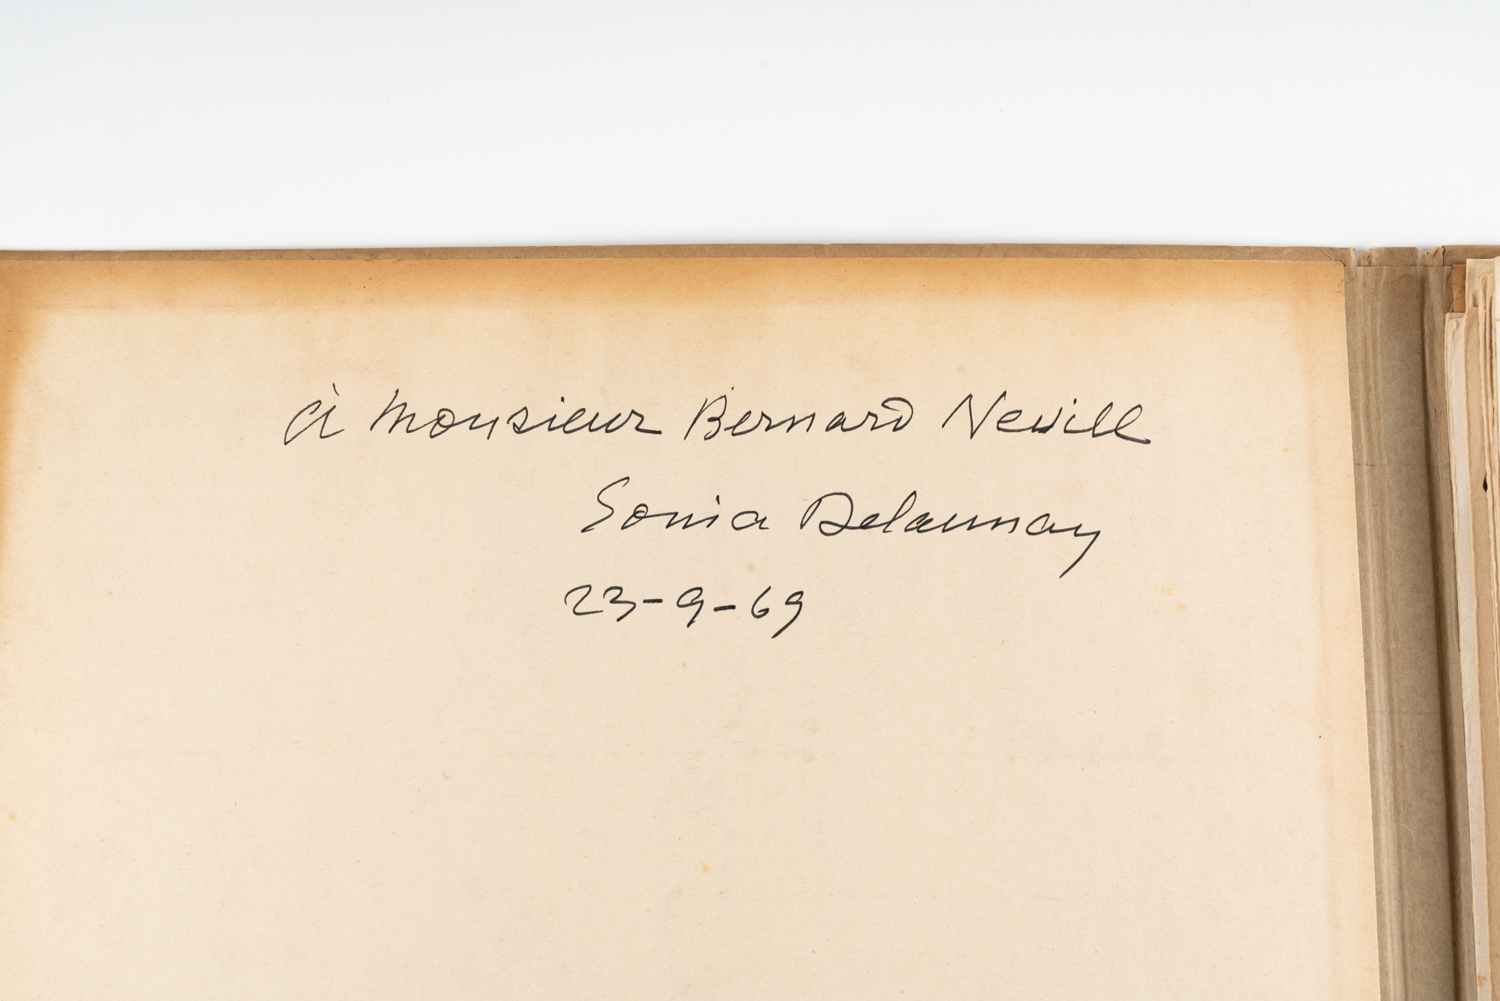 à Monsieur Bernard Nevill
Sonia Delaunay
23-9-69